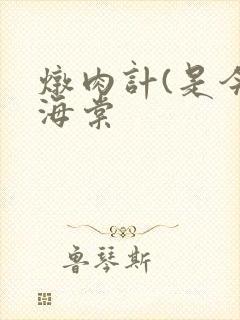 燉肉計(是今
海棠
魯琴斯